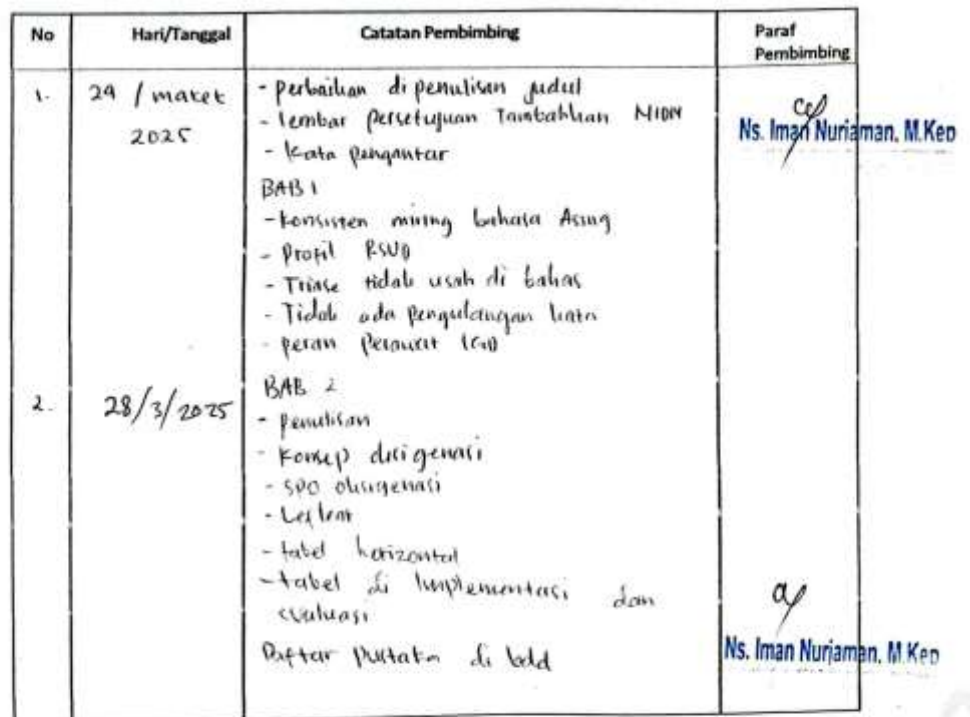 No Hari/Tanggal Catatan Pembimbing Paraf Pembimbing
1. 29 / maret 2025
- perbaikan di penulisan judul
- lembar persetujuan Tambahkan NIDN
- Kata pengantar
Ns. Iman Nuriaman, M.Kep
BAB 1
- Konsisten miring bahasa Asing
- Profil RSUD
- Triase tidak usah di bahas
- Tidak ada pengulangan kata
- peran perawat IGD
2. 28/3/2025
BAB 2
- penulisan
- Konsep oksigenasi
- SPO oksigenasi
- Lefleat
- tabel horizontal
- tabel di Implementasi dan
evaluasi
Daftar Pustaka di bold
Ns. Iman Nurjaman, M.Kep